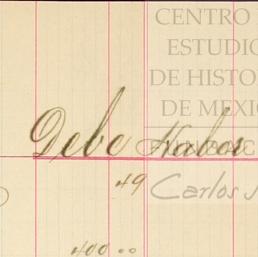 CENTRO
ESTUDIO
DE HISTO
DE MEXIC
Debe Haber
49
Carlos
400 00